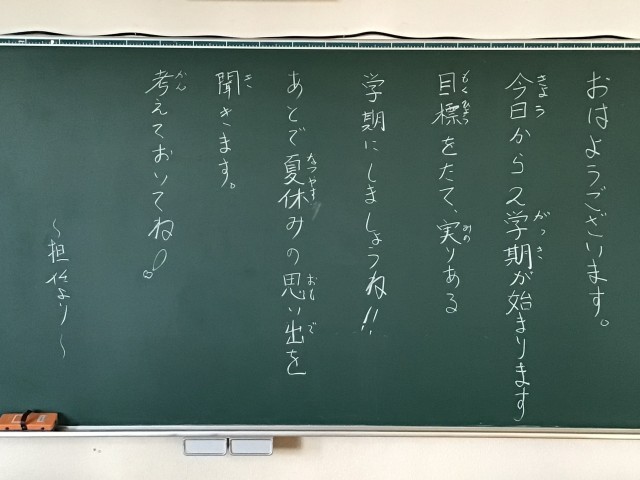 おはようございます。
今日から2学期が始まります
目標をたて、実りある
学期にしましょうね!!
あとで夏休みの思い出を
聞きます。
考えておいてね!
〜担任より〜